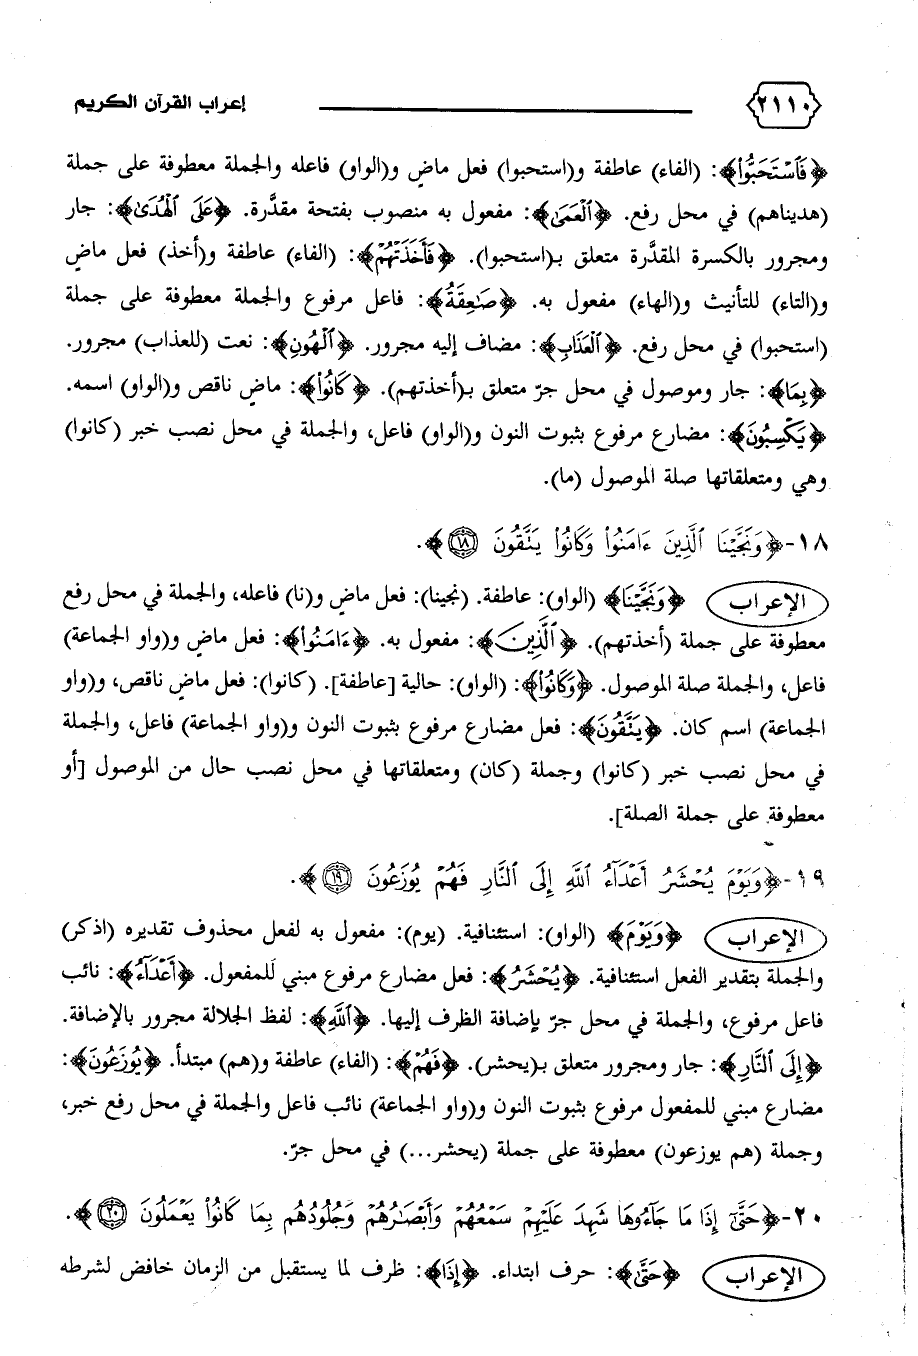 ٢١١٠ إعراب القرآن الكريم
﴿فَٱسْتَحَبُّوا۟﴾: (الفاء) عاطفة و(استحبوا) فعل ماضٍ و(الواو) فاعله والجملة معطوفة على جملة
(هديناهم) في محل رفع. ﴿ٱلْعَمَىٰ﴾: مفعول به منصوب بفتحة مقدَّرة. ﴿عَلَى ٱلْهُدَىٰ﴾: جار
ومجرور بالكسرة المقدَّرة متعلق بـ(استحبوا). ﴿فَأَخَذَتْهُمْ﴾: (الفاء) عاطفة و(أخذ) فعل ماضٍ
و(التاء) للتأنيث و(الهاء) مفعول به. ﴿صَٰعِقَةُ﴾: فاعل مرفوع والجملة معطوفة على جملة
(استحبوا) في محل رفع. ﴿ٱلْعَذَابِ﴾: مضاف إليه مجرور. ﴿ٱلْهُونِ﴾: نعت (للعذاب) مجرور.
﴿بِمَا﴾: جار وموصول في محل جرّ متعلق بـ(أخذتهم). ﴿كَانُوا۟﴾: ماضٍ ناقص و(الواو) اسمه.
﴿يَكْسِبُونَ﴾: مضارع مرفوع بثبوت النون و(الواو) فاعل، والجملة في محل نصب خبر (كانوا)
وهي ومتعلقاتها صلة الموصول (ما).
١٨-﴿وَنَجَّيْنَا ٱلَّذِينَ ءَامَنُوا۟ وَكَانُوا۟ يَتَّقُونَ ١٨﴾.
الإعراب ﴿وَنَجَّيْنَا﴾ (الواو): عاطفة. (نجينا): فعل ماضٍ و(نا) فاعله، والجملة في محل رفع
معطوفة على جملة (أخذتهم). ﴿ٱلَّذِينَ﴾: مفعول به. ﴿ءَامَنُوا۟﴾: فعل ماضٍ و(واو الجماعة)
فاعل، والجملة صلة الموصول. ﴿وَكَانُوا۟﴾: (الواو): حالية [عاطفة]. (كانوا): فعل ماضٍ ناقص، و(واو
الجماعة) اسم كان. ﴿يَتَّقُونَ﴾: فعل مضارع مرفوع بثبوت النون و(واو الجماعة) فاعل، والجملة
في محل نصب خبر (كانوا) وجملة (كان) ومتعلقاتها في محل نصب حال من الموصول [أو
معطوفة على جملة الصلة].
١٩-﴿وَيَوْمَ يُحْشَرُ أَعْدَآءُ ٱللَّهِ إِلَى ٱلنَّارِ فَهُمْ يُوزَعُونَ ١٩﴾.
الإعراب ﴿وَيَوْمَ﴾ (الواو): استئنافية. (يوم): مفعول به لفعل محذوف تقديره (اذكر)
والجملة بتقدير الفعل استئنافية. ﴿يُحْشَرُ﴾: فعل مضارع مرفوع مبني للمفعول. ﴿أَعْدَآءُ﴾: نائب
فاعل مرفوع، والجملة في محل جرّ بإضافة الظرف إليها. ﴿ٱللَّهِ﴾: لفظ الجلالة مجرور بالإضافة.
﴿إِلَى ٱلنَّارِ﴾: جار ومجرور متعلق بـ(يحشر). ﴿فَهُمْ﴾: (الفاء) عاطفة و(هم) مبتدأ. ﴿يُوزَعُونَ﴾:
مضارع مبني للمفعول مرفوع بثبوت النون و(واو الجماعة) نائب فاعل والجملة في محل رفع خبر،
وجملة (هم يوزعون) معطوفة على جملة (يحشر...) في محل جرّ.
٢٠-﴿حَتَّىٰٓ إِذَا مَا جَآءُوهَا شَهِدَ عَلَيْهِمْ سَمْعُهُمْ وَأَبْصَٰرُهُمْ وَجُلُودُهُم بِمَا كَانُوا۟ يَعْمَلُونَ ٢٠﴾.
الإعراب ﴿حَتَّىٰٓ﴾: حرف ابتداء. ﴿إِذَا﴾: ظرف لما يستقبل من الزمان خافض لشرطه